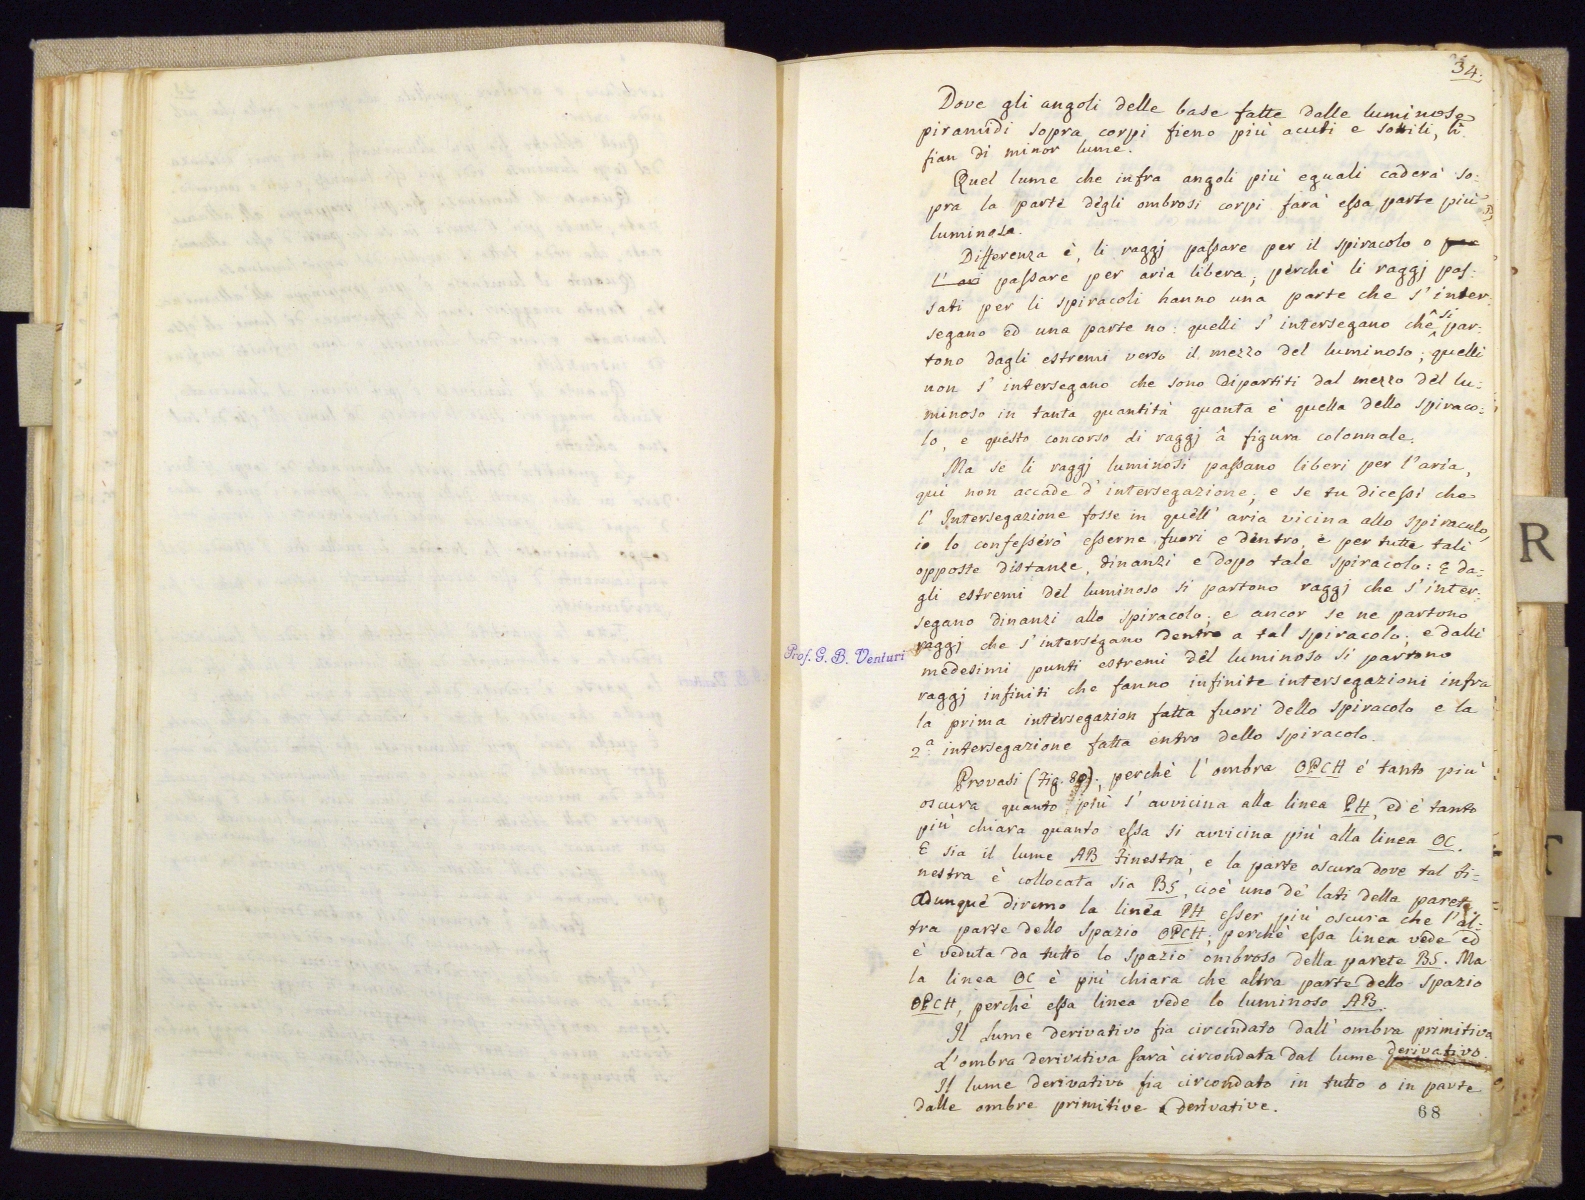 34.
Dove gli angoli delle base fatte dalle luminose
piramidi sopra corpi fieno più acuti e sottili, lì
fian di minor lume.
Quel lume che infra angoli più eguali caderà so:
pra la parte degli ombrosi corpi farà essa parte più
luminosa.
Differenza è, li raggj passare per il spiracolo o
l' passare per aria libera; perchè li raggj pas:
sati per li spiracoli hanno una parte che s' inter:
segano ed una parte no: quelli s' intersegano che si par:
tono dagli estremi verso il mezzo del luminoso; quelli
non s' intersegano che sono dipartiti dal mezzo del lu:
minoso in tanta quantità quanta è quella dello spiraco:
lo, e questo concorso di raggj â figura colonnale.
Ma se li raggj luminosi passano liberi per l'aria,
qui non accade d' intersegazione; e se tu dicessi che
l' Intersegazione fosse in quell' aria vicina allo spiraculo,
io lo confesserò esserne fuori e dentro, e per tutte tali
opposte distanze, dinanzi e dopo tale spiracolo: E da:
gli estremi del luminoso si partono raggj che s' inter:
segano dinanzi allo spiracolo; e ancor se ne partono
raggj che s' intersegano dentro a tal spiracolo; e dalli
Prof. G. B. Venturi
medesimi punti estremi del luminoso si partono
raggj infiniti che fanno infinite intersegazioni infra
la prima intersegazion fatta fuori dello spiracolo e la
2.a intersegazione fatta entro dello spiracolo.
Provasi (Fig. 89); perchè l' ombra OPCH è tanto più
oscura quanto più s' avvicina alla linea PH, ed è tanto
più chiara quanto essa si avvicina più alla linea OC.
E sia il lume AB Finestra, e la parte oscura dove tal fi:
nestra è collocata sia BS, cioè uno de' lati della parete
Adunque diremo la linea PH esser più oscura che l'al:
tra parte dello spazio OPCH; perchè essa linea vede ed
è veduta da tutto lo spazio ombroso della parete BS. Ma
la linea OC è più chiara che altra parte dello spazio
OPCH, perchè essa linea vede lo luminoso AB.
Il Lume derivativo fia circondato dall' ombra primitiva
L'ombra derivativa sarà circondata dal lume derivativo.
Il lume derivativo fia circondato in tutto o in parte
dalle ombre primitive e derivative.
68
R